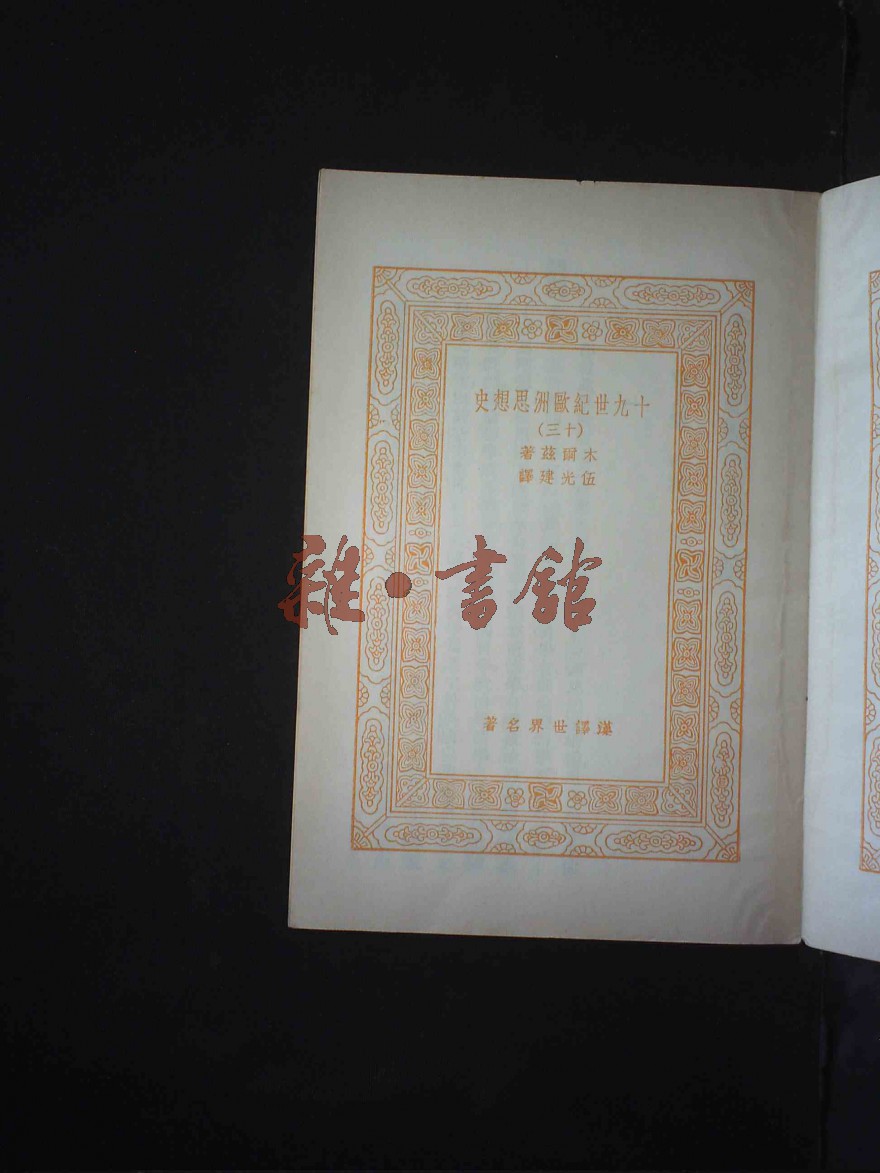 十九世紀歐洲思想史
(十三)
木爾茲著
伍光建譯
雜·書館
漢譯世界名著